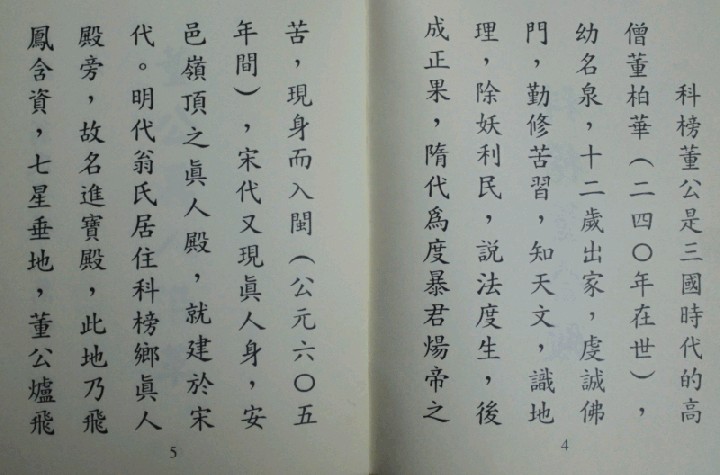 科榜董公是三國時代的高
僧董柏華（二四〇年在世），
幼名泉，十二歲出家，虔誠佛
門，勤修苦習，知天文，識地
理，除妖利民，説法度生，後
成正果，隋代爲度暴君煬帝之
4
苦，現身而入閩（公元六〇五
年間），宋代又現眞人身，安
邑嶺頂之眞人殿，就建於宋
代。明代翁氏居住科榜鄉眞人
殿旁，故名進寶殿，此地乃飛
鳳含資，七星垂地，董公爐飛
5